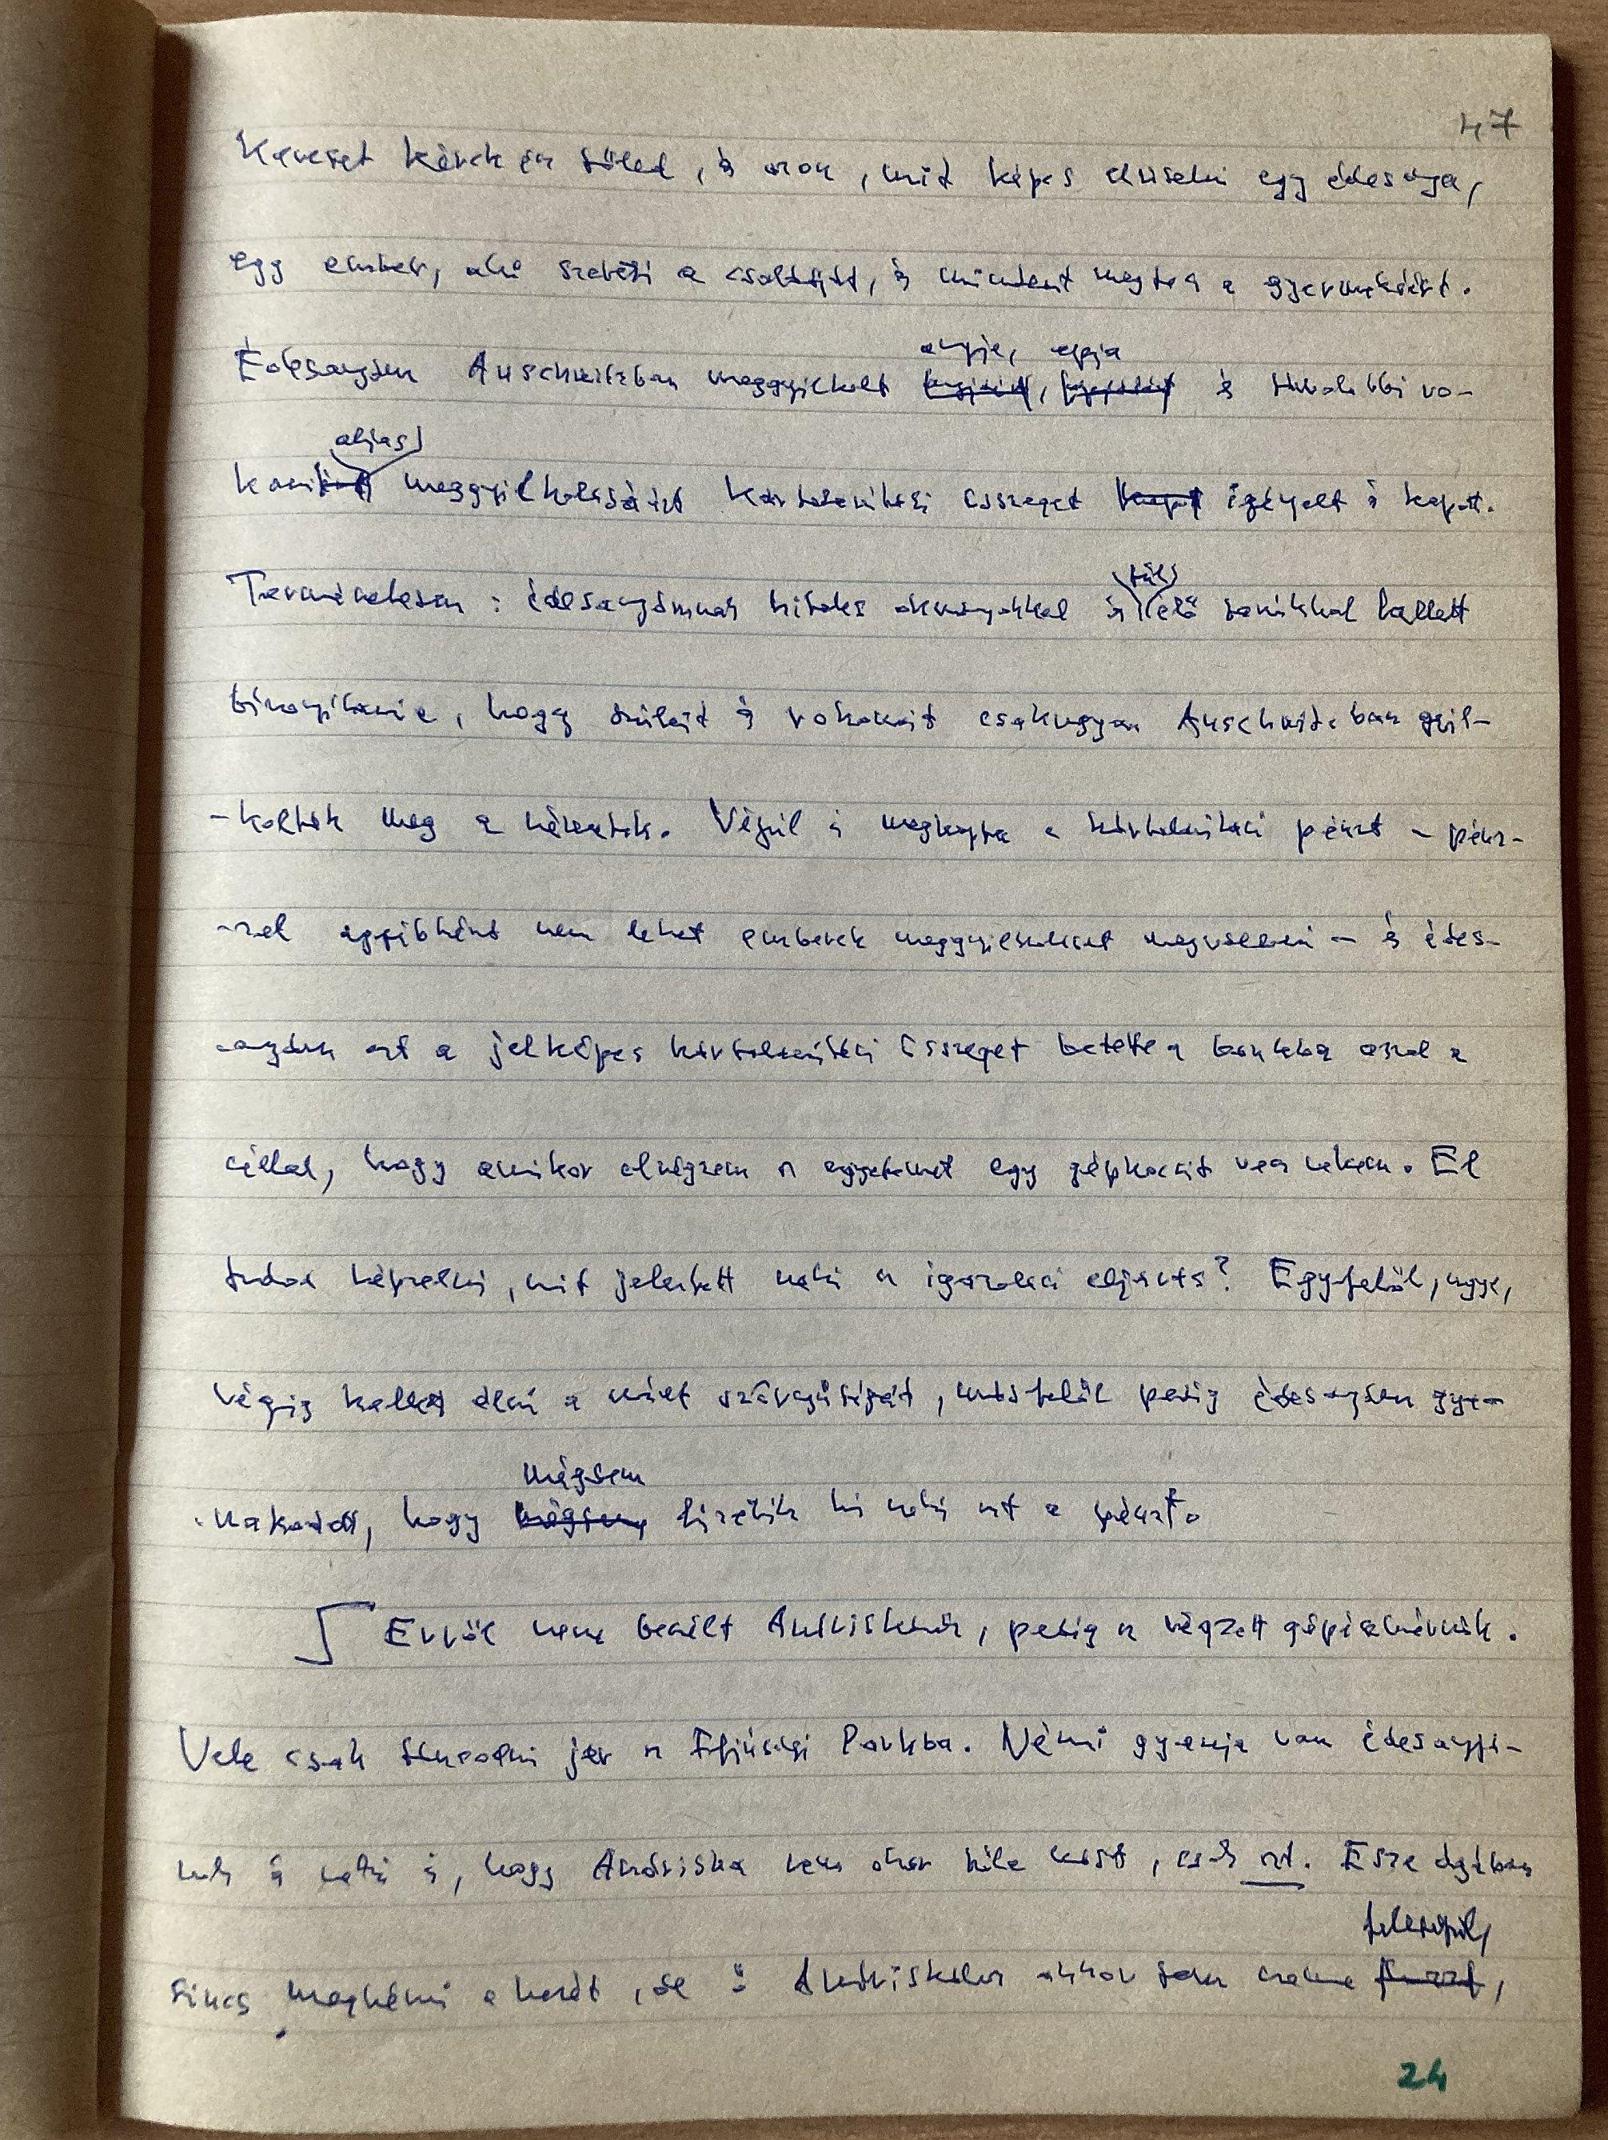 47
Keveset kérek én tőled, és azon, mit képes elviselni egy édesanya,
egy ember, aki szereti a családját, és mindent megtesz a gyermekéért.
anyja, apja
Édesanyám Auschwitzban meggyilkolt és távolabbi ro-
aljas
koni meggyilkolásáért kártalanítási összeget kapott igényelt és kapott.
túl
Természetesen: édesanyámnak hiteles okmányokkal és élő tanúkkal kellett
bizonyítania, hogy szüleit és rokonait csakugyan Auschwitzban gyil-
-kolták meg a németek. Végül is megkapta a kártalanítási pénzt – pénz-
-zel egyébként nem lehet emberek meggyilkolását megváltani – és édes-
-anyám ezt a jelképes kártalanítási összeget betette a bankba azzal a
céllal, hogy amikor elvégzem az egyetemet egy gépkocsit vesz nekem. El
tudod képzelni, mit jelentett neki az igazolási eljárás? Egyfelől, ugye,
végig kellett élni a múlt szörnyűségeit, másfelől pedig édesanyám gya-
mégsem
-nakodott, hogy mégsem fizetik ki neki ezt a pénzt.
Erről nem beszélt Andriskának, pedig az végzett gépészmérnök.
Vele csak táncolni jár az Ifjúsági Parkba. Némi gyanúja van édesanyjá-
nak és neki is, hogy Andriska nem akar tőle mást, csak azt. Esze ágában
felesépül,
sincs megkérni a kezét, de ő Andriskához akkor sem menne
24